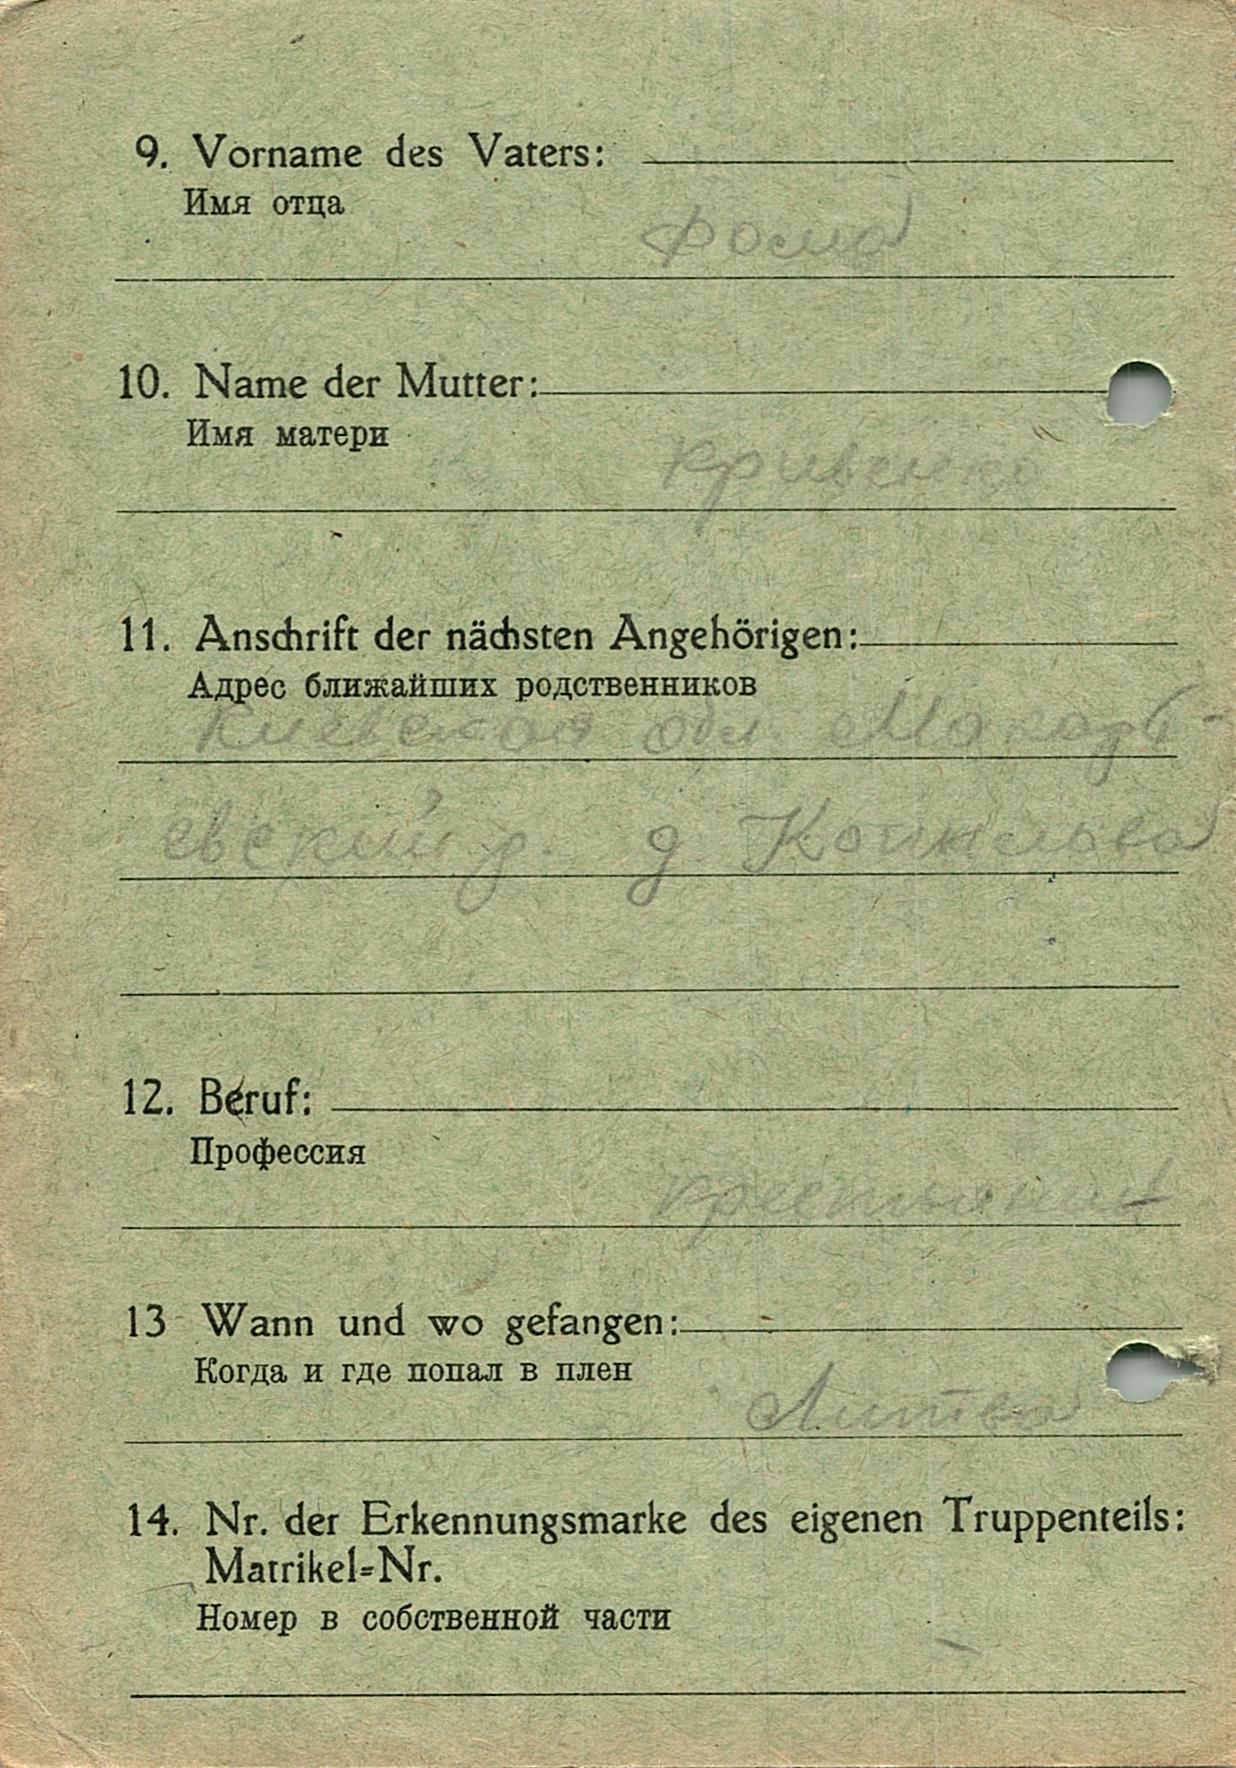 9. Vorname des Vaters:
Имя отца
Фома
10. Name der Mutter:
Имя матери
Кривенко
11. Anschrift der nächsten Angehörigen:
Адрес ближайших родственников
Киевская обл. Макарь-
евский р. д.
12. Beruf:
Профессия
крестьянин
13 Wann und wo gefangen:
Когда и где попал в плен
Литва
14. Nr. der Erkennungsmarke des eigenen Truppenteils:
Matrikel=Nr.
Номер в собственной части